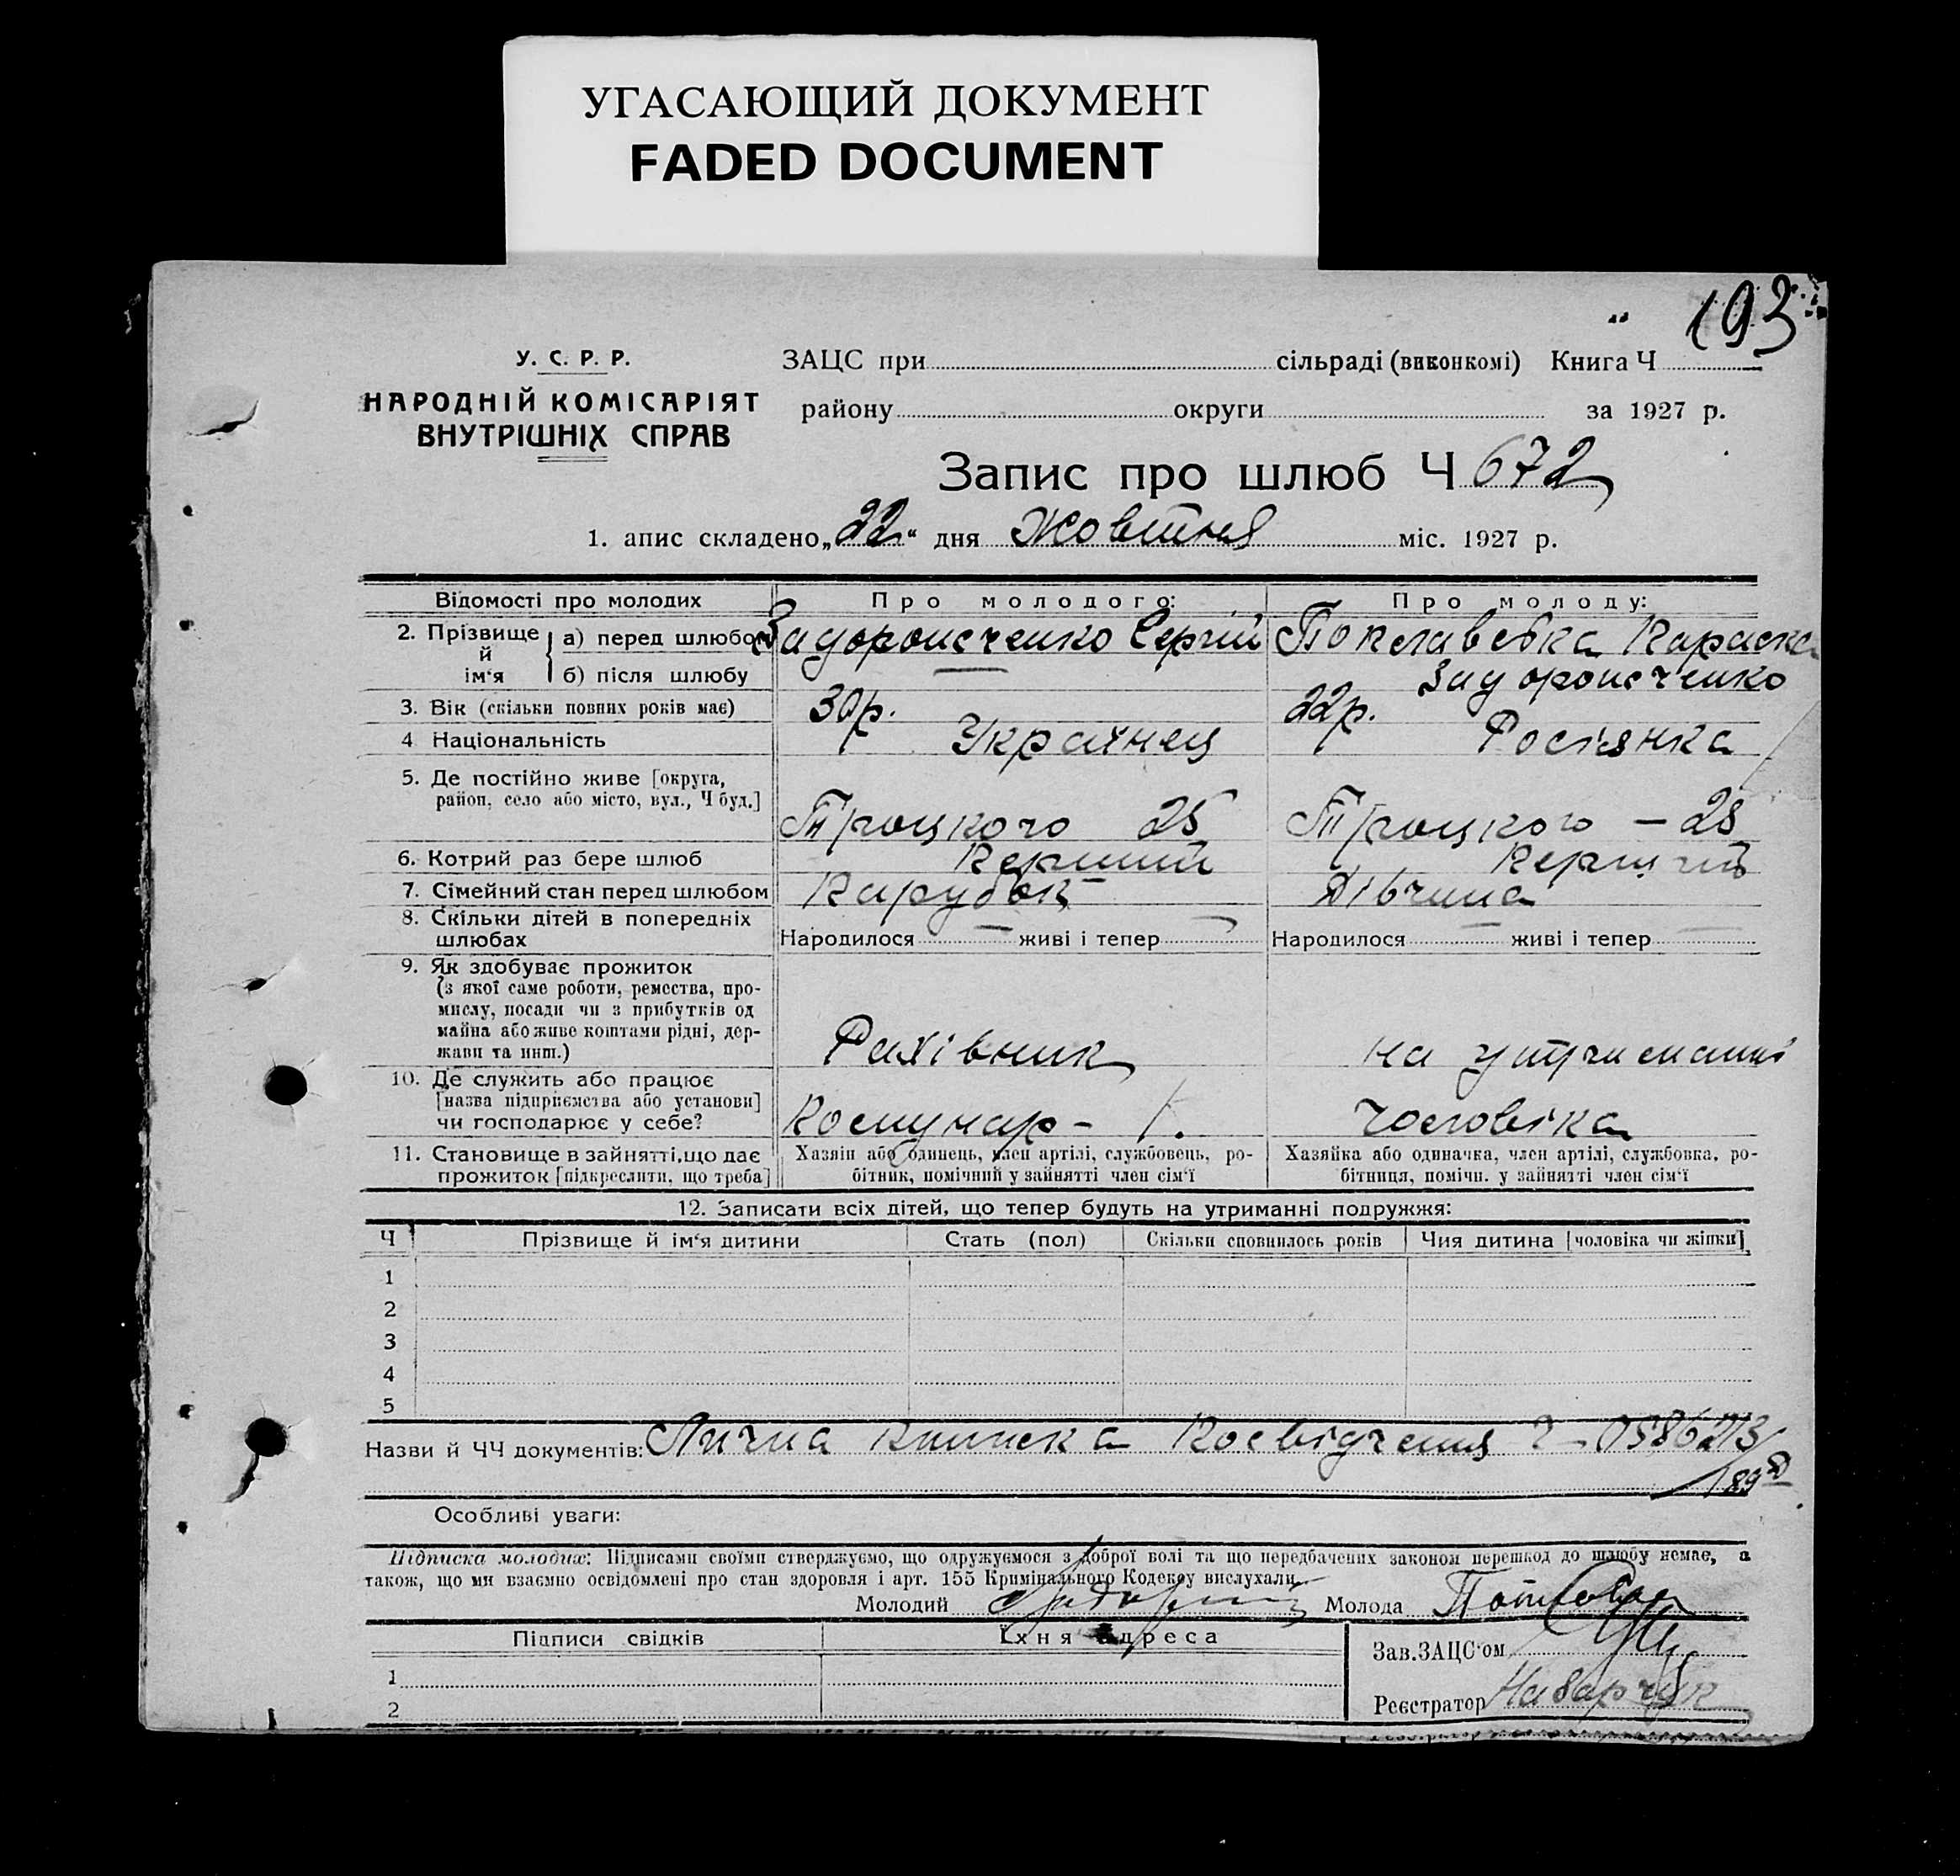 УГАСАЮЩИЙ ДОКУМЕНТ
FADED DOCUMENT
193
У. С. Р. Р.
НАРОДНІЙ КОМІСАРІЯТ
ВНУТРІШНІХ СПРАВ
ЗАЦС при сільраді (виконкомі) Книга Ч
району округи за 1927 р.
Запис про шлюб Ч 672
1. апис складено „22“ дня Жовтня міс. 1927 р.
Відомості про молодих Про молодого: Про молоду:
2. Прізвище й ім‘я а) перед шлюбом Задорожченко Сергій
б) після шлюбу — Задорожченко
3. Вік (скільки повних років має) 30р. 22р.
4 Національність Українец Росіянка
5. Де постійно живе [округа,
район, село або місто, вул., Ч буд.] Троцкого 25 Троцкого – 25
6. Котрий раз бере шлюб Перший Перший
7. Сімейний стан перед шлюбом Парубок Дівчина
8. Скільки дітей в попередніх
шлюбах Народилося — живі і тепер — Народилося — живі і тепер —
9. Як здобуває прожиток
(з якої саме роботи, ремества, про-
мислу, посади чи з прибутків од
майна або живе коштами рідні, дер-
жави та инш.) Рахівник на утриманні
10. Де служить або працює
[назва підприємства або установи]
чи господарює у себе? Комунар – чоловіка
11. Становище в зайнятті, що дає
прожиток [підкреслити, що треба]
Хазяїн або одинець, член артілі, службовець, ро-
бітник, помічний у зайнятті член сім‘ї
Хазяйка або одиначка, член артілі, службовка, ро-
бітниця, помічн. у зайнятті член сім‘ї
12. Записати всіх дітей, що тепер будуть на утриманні подружжя:
Ч Прізвище й ім‘я дитини Стать (пол) Скільки сповнилось років Чия дитина [чоловіка чи жінки]
1
2
3
4
5
Назви й ЧЧ документів: Лична книжка Посвідчення
Особливі уваги:
Підписка молодих: Підписами своїми стверджуємо, що одружуємося з доброї волі та що передбачених законом перешкод до шлюбу немає, а
також, що ми взаємно освідомлені про стан здоровля і арт. 155 Кримінального Кодексу вислухали.
Молодий Молода
Підписи свідків Їхня адреса
Зав. ЗАЦС‘ом
1
Реєстратор
2